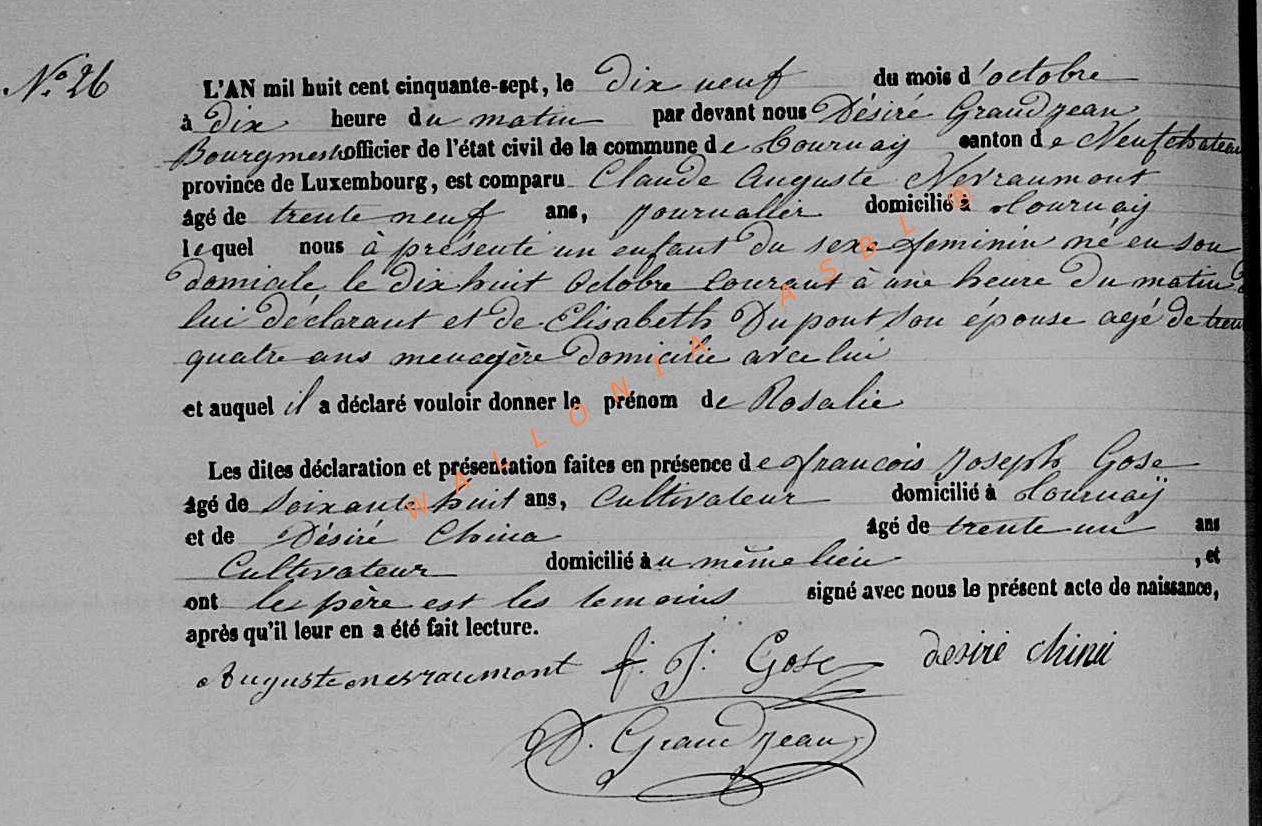 N° 26
L'AN mil huit cent cinquante-sept, le dix neuf du mois d'octobre
à dix heure du matin par devant nous Désiré Grandjean
Bourgmestre officier de l'état civil de la commune de Tournay canton de Neufchateau
province de Luxembourg, est comparu Claude Auguste Nevraumont
âgé de trente neuf ans, journalier domicilié à Tournay
lequel nous à présenté un enfant du sexe feminin né en son
domicile le dix huit octobre courant à une heure du matin de
lui déclarant et de Elisabeth Dupont son épouse agé de trente
quatre ans menagère domicilie avec lui
et auquel il a déclaré vouloir donner le prénom de Rosalie
Les dites déclaration et présentation faites en présence de francois Joseph Gose
âgé de soixante huit ans, Cultivateur domicilié à Tournaÿ
et de Désiré China âgé de trente un ans
Cultivateur domicilié àu même lieu , et
ont le père est les temoins signé avec nous le présent acte de naissance,
après qu'il leur en a été fait lecture.
Auguste nevraumont f. J: Gose désiré chini
D. Grandjean
WALLONIA ASBL ®